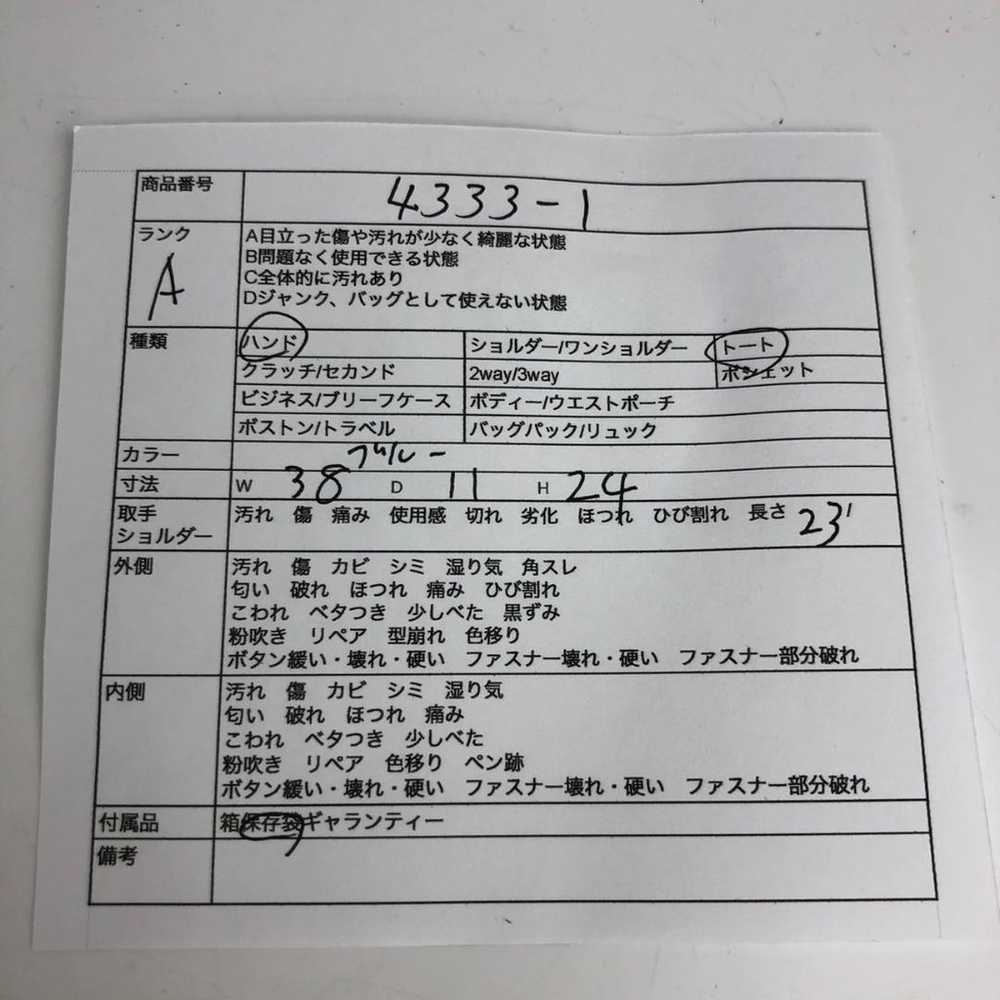 商品番号 4333-1
ランク A目立った傷や汚れが少なく綺麗な状態
A B問題なく使用できる状態
C全体的に汚れあり
Dジャンク、バッグとして使えない状態
種類 ハンド ショルダー/ワンショルダー トート
クラッチ/セカンド 2way/3way ポシェット
ビジネス/ブリーフケース ボディー/ウエストポーチ
ボストン/トラベル バッグパック/リュック
カラー ブルー
寸法 W 38 D 11 H 24
取手 汚れ 傷 痛み 使用感 切れ 劣化 ほつれ ひび割れ 長さ 23
ショルダー
外側 汚れ 傷 カビ シミ 湿り気 角スレ
匂い 破れ ほつれ 痛み ひび割れ
こわれ ベタつき 少しべた 黒ずみ
粉吹き リペア 型崩れ 色移り
ボタン緩い・壊れ・硬い ファスナー壊れ・硬い ファスナー部分破れ
内側 汚れ 傷 カビ シミ 湿り気
匂い 破れ ほつれ 痛み
こわれ ベタつき 少しべた
粉吹き リペア 色移り ペン跡
ボタン緩い・壊れ・硬い ファスナー壊れ・硬い ファスナー部分破れ
付属品 箱保存袋ギャランティー
備考